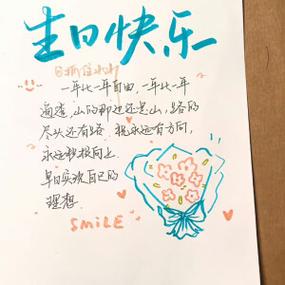 生日快乐
一年比一年自由，一年比一年
通透，山的那边还是山，路的
尽头还有路 祝永远有方向，
永远积极向上
早日实现自己的
理想
SMILE